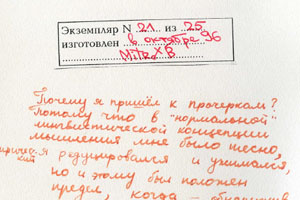 Экземпляр N 21 из 25
изготовлен в октябре 96
Почему я пришёл к прочеркам?
Потому что в "нормальной"
лингвистической концепции
мышления мне было тесно,
я редуцировался и ужимался,
но и этому был положен
предел, когда —